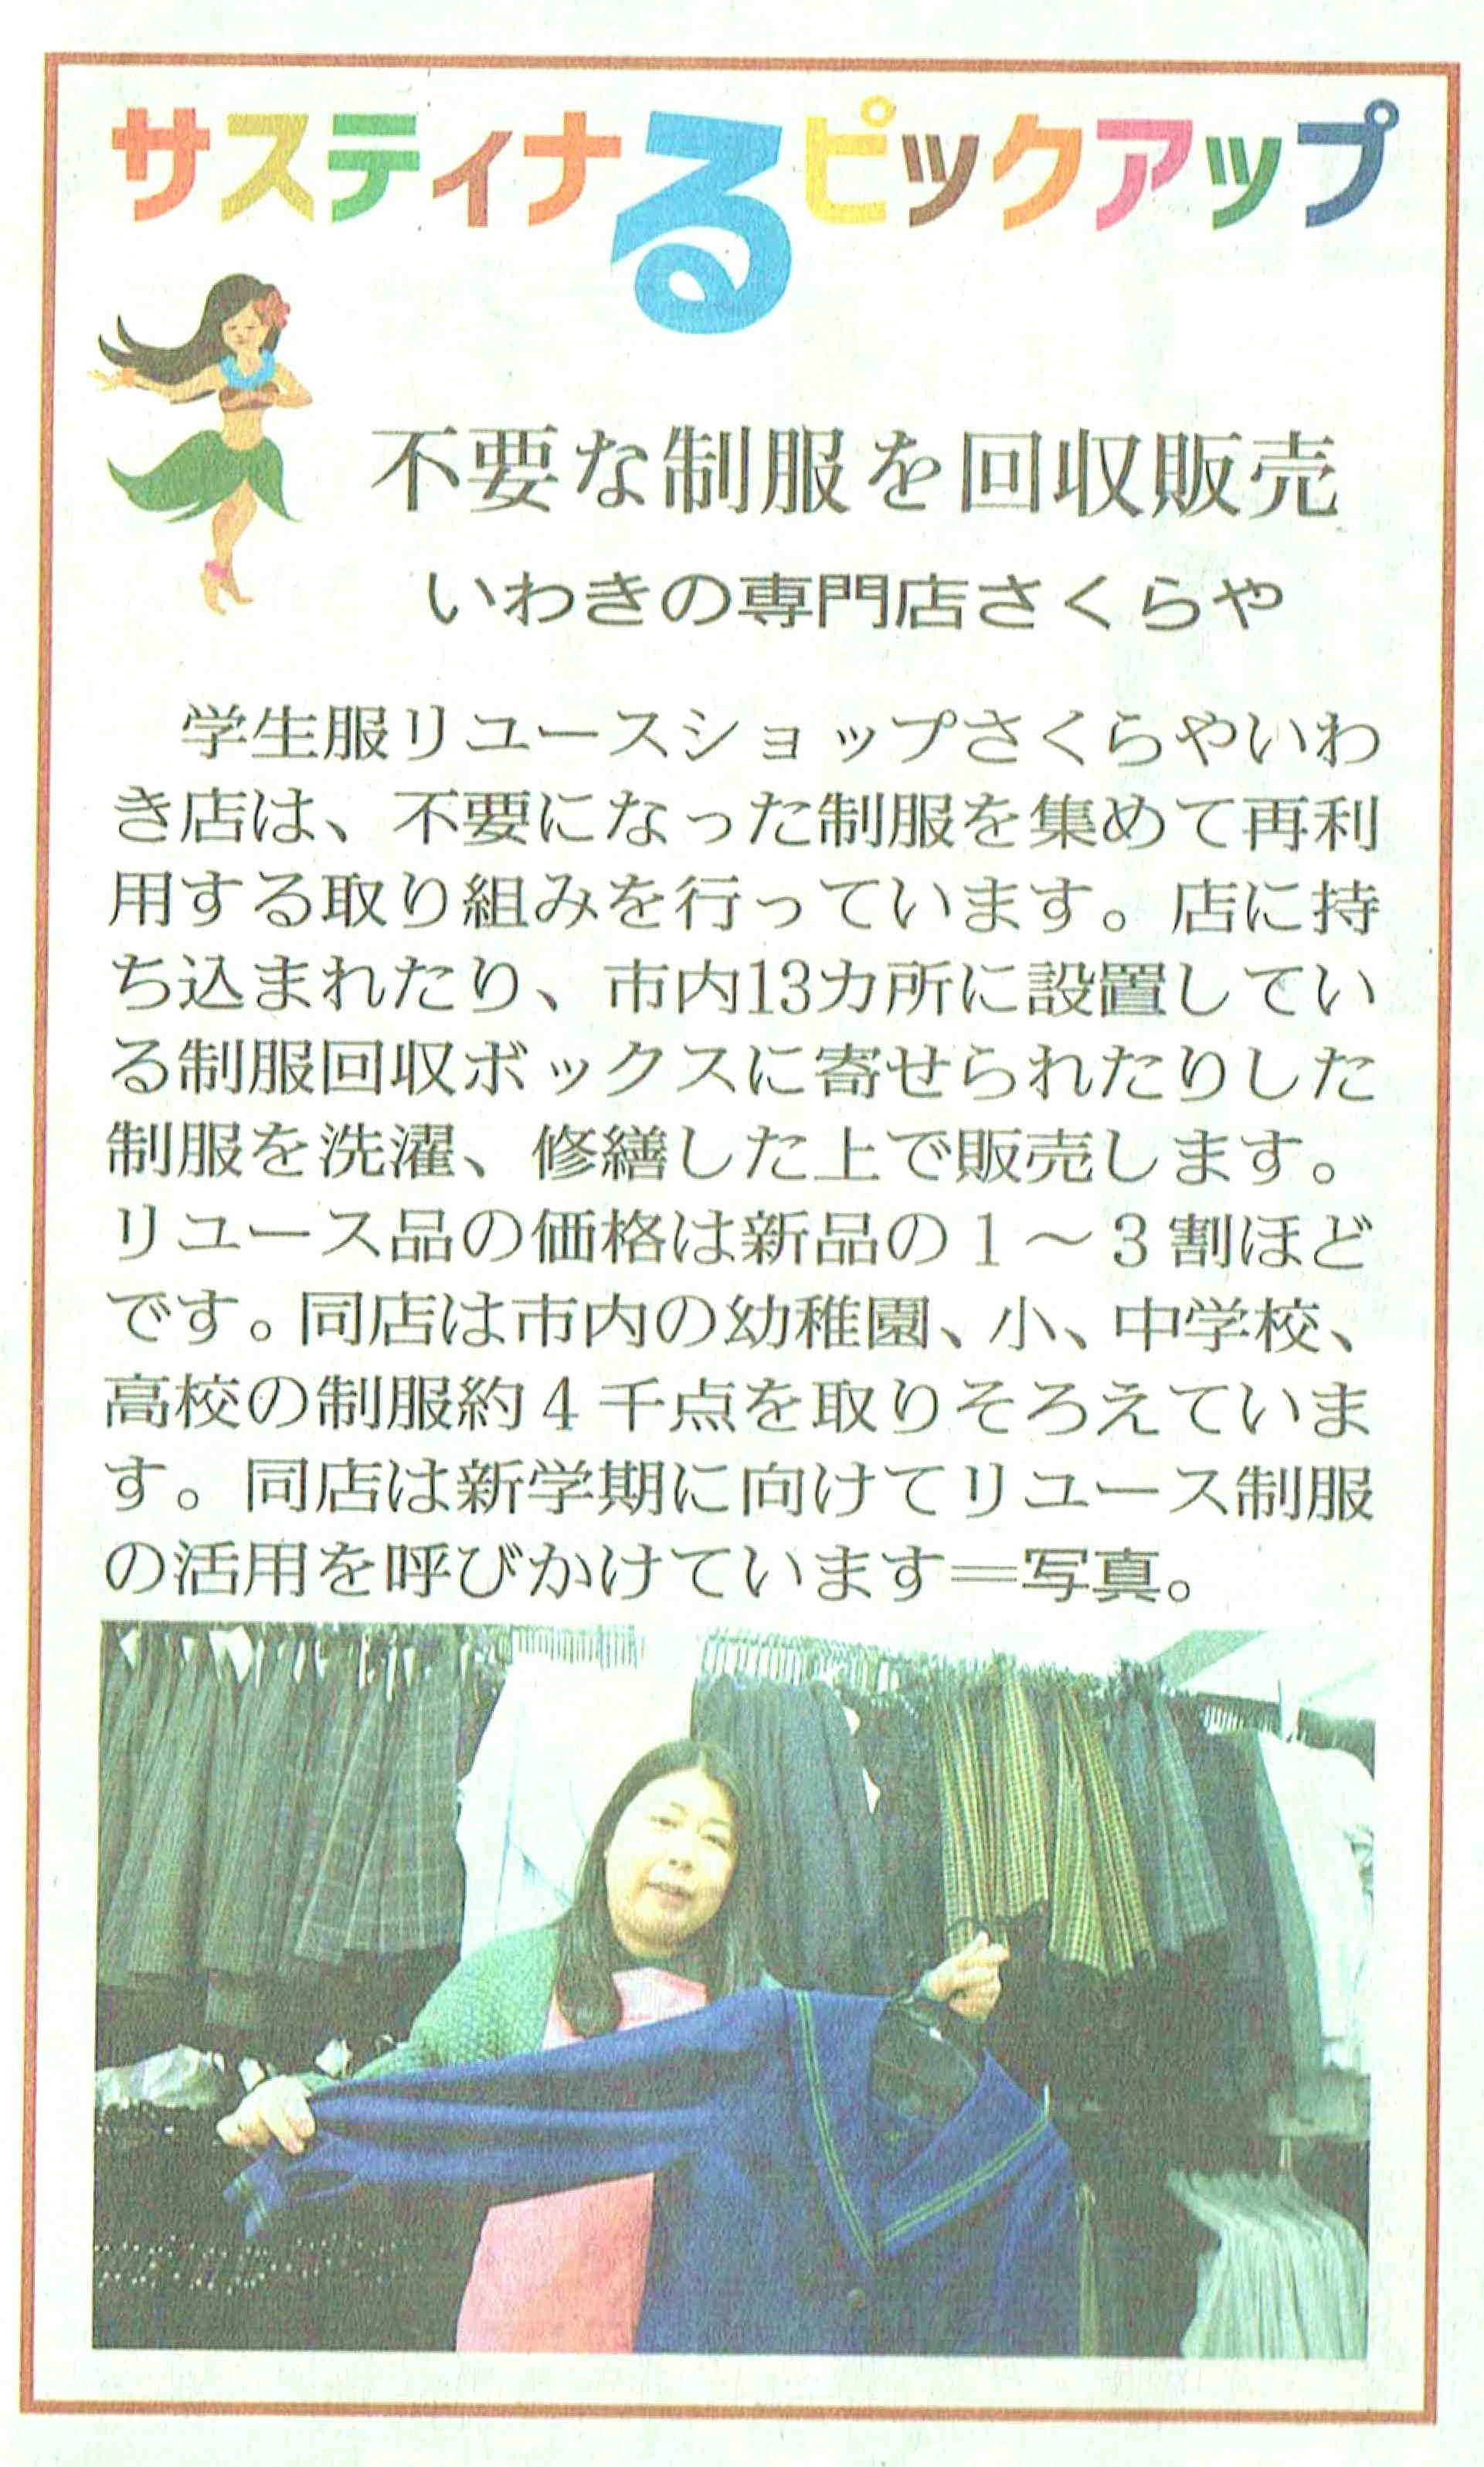 サスティナるピックアップ
不要な制服を回収販売
いわきの専門店さくらや
　学生服リユースショップさくらやいわ
き店は、不要になった制服を集めて再利
用する取り組みを行っています。店に持
ち込まれたり、市内13カ所に設置してい
る制服回収ボックスに寄せられたりした
制服を洗濯、修繕した上で販売します。
リユース品の価格は新品の１～３割ほど
です。同店は市内の幼稚園、小、中学校、
高校の制服約４千点を取りそろえていま
す。同店は新学期に向けてリユース制服
の活用を呼びかけています＝写真。